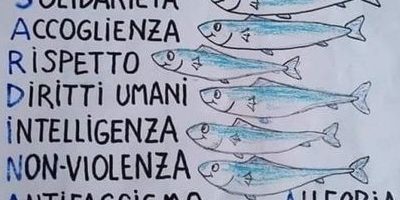 SOLIDARIETÀ
ACCOGLIENZA
RISPETTO
DIRITTI UMANI
INTELLIGENZA
NON-VIOLENZA
ANTIFASCISMO ALLEGRIA